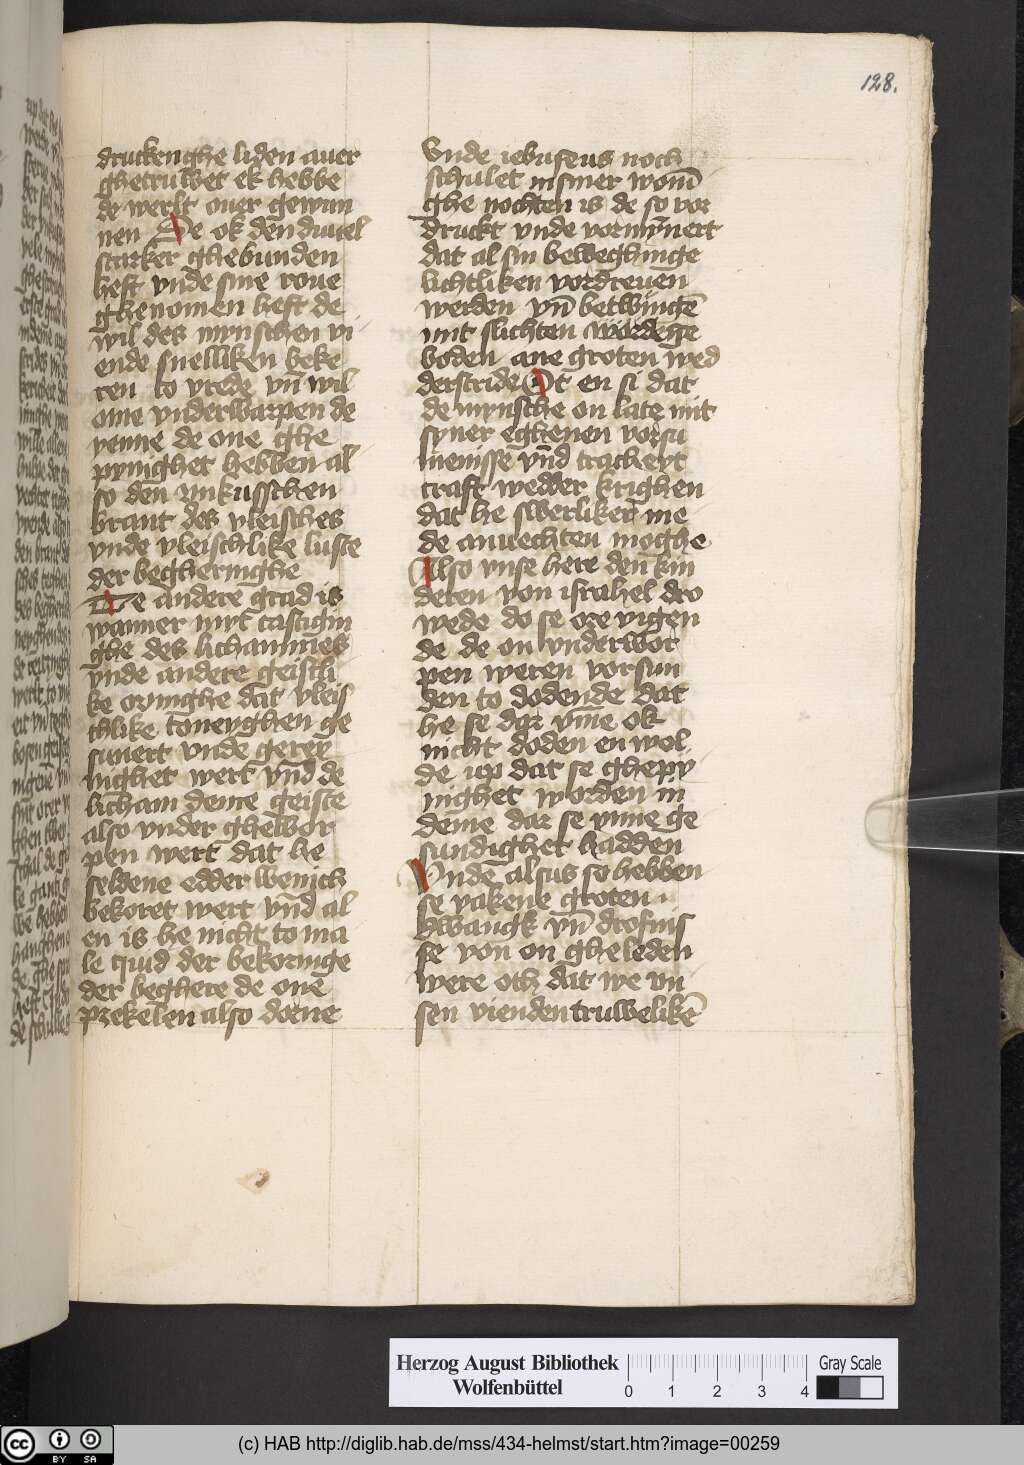 128.
druckenghe liden auer
ghetruwet ek hebbe
de werlt ouer gewun
nen De ok den duuel
starker ghebunden
heft vnde sine roue
ghenomen heft de
wil des mynschen vi
ende snelliken beke
ren to vrede vn̄ wil
ome vnderwarpen de
yenne de one ghe
pynighet hebben al
so den vnkusschen
brant des vleisches
vnde vleischlike luste
der begheringhe
De andere grad is
wanner myt castigin
ghe des lichammes
vnde andere geistli
ke ouinghe dat vleis
chlike toneyghen ge
suuert vnde gerey
nighet wert vn̄d de
licham deme geiste
also vnder ghewor
pen wert dat he
seldene edder wenich
bekoret wert vn̄d al
en is he nicht to ma
le quid der bekoringe
der beghere de one
prekelen also dorne
Vnde iebuseus noch
schulet in siner woni
ghe nochten is de so vor
druckt vnde vormynert
dat al sin beweghinge
lichtliken vordreuen
werden vn̄ betwingē
mit slichten worden ge
boden ane groten wed
derstride Ot en si dat
de mynsche on late mit
syner eghenen vorsu
menisse vn̄d tracheyt
craft wedder krighen
dat he swerliken me
de anuechten moghe
Also vnse here den kin
deren von israhel dro
wede do se ore vigen
de de on vnderwor
pen weren vorsun
den to dodende dat
he se dar vm̄e ok
nicht doden en wol
de up dat se ghepy
nighet worden in
deme dar se vm̄e ge
sundighet hadden
Vnde alsus so hebben
se vakene groten
dwangk vn̄ drofnis
se von on gheleden
were och dat we vn
sen vienden truwelikē
Herzog August Bibliothek
Wolfenbüttel
0 1 2 3 4
Gray Scale
cc BY SA
(c) HAB http://diglib.hab.de/mss/434-helmst/start.htm?image=00259